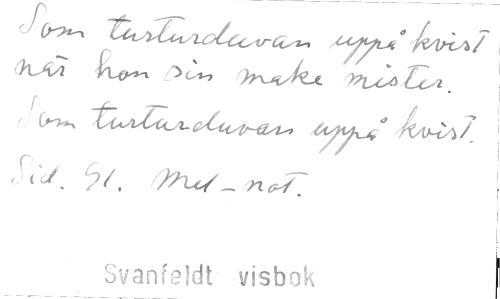 Som turturduvan uppå kvist
när hon sin make mister.
Som turturduvan uppå kvist.
Sid. 51. Mel-not.
Svanfeldt visbok